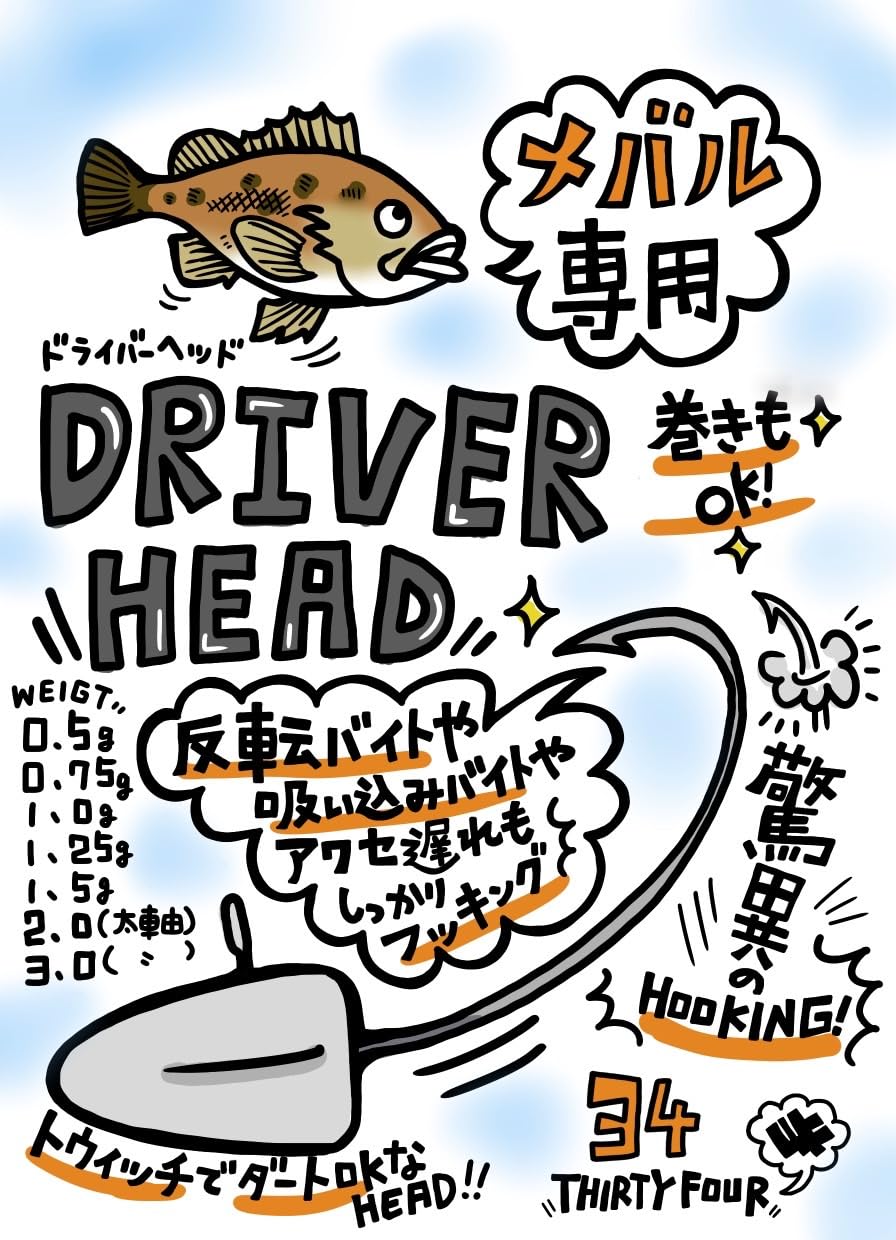 メバル
専用
ドライバーヘッド
DRIVER
HEAD
巻きも
OK!
WEIGT
0.5g
0.75g
1.0g
1.25g
1.5g
2.0(太軸)
3.0(〃)
反転バイトや
吸い込みバイトや
アワセ遅れも
しっかり
フッキング
驚異の
HOOKING!
トウィッチでダートOKな
HEAD!!
34
THIRTY FOUR